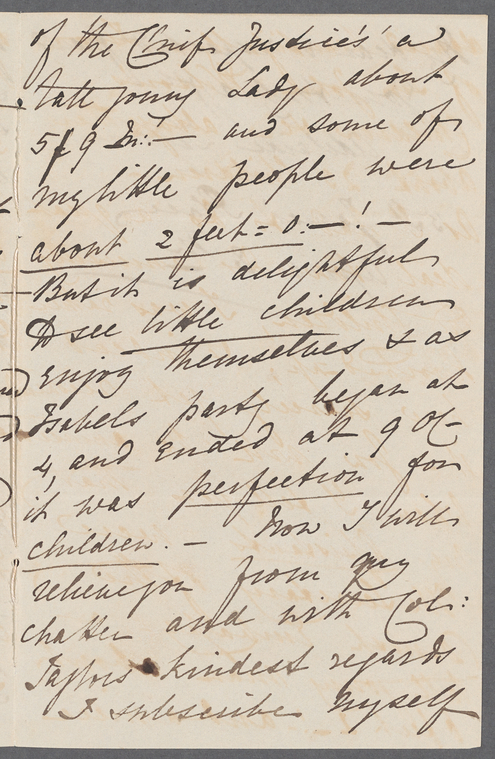 of the Chief Justice's' a
tall young Lady about
5 f 9 In: — and some of
my little people were
about 2 feet = 0. — ! —
But it is delightful
to see little children
enjoy themselves & as
Isabels party began at
4, and ended at 9 OC
it was perfection for
children. — Now I will
relieve you from my
chatter and with Col:
Taylors kindest regards
I subscribe myself